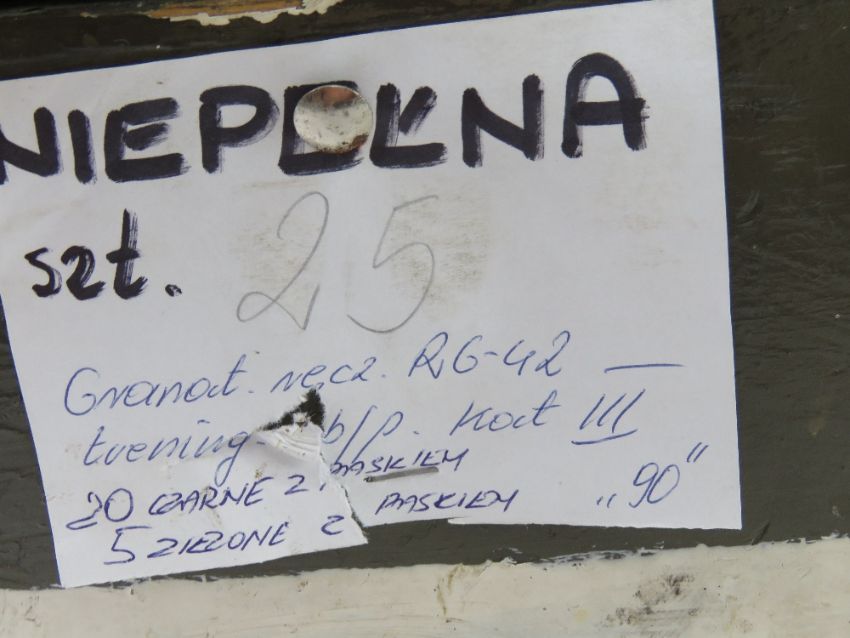 NIEPEŁNA
szt. 25
Granat. ręcz. RG-42 —
trening. b/p. Kat III
20 CZARNE Z PASKIEM
5 ZIELONE Z PASKIEM „90”